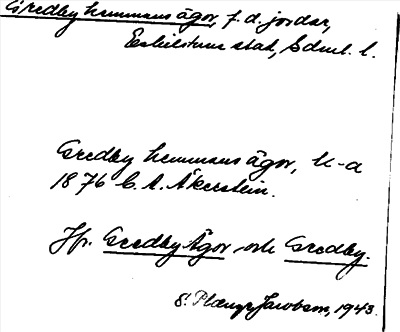 Gredby hemmans ägor, f.d. jordar,
Eskilstuna stad, Södml. l.
Gredby hemmans ägor, U-a
1876 C. A. Åkerstein.
Jfr. Gredby Ägor och Gredby.
Jacobsson, 1943.